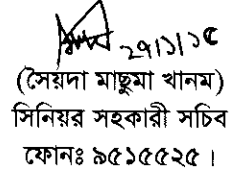 ২৭/১/১৫
(সৈয়দা মাছুমা খানম)
সিনিয়র সহকারী সচিব
ফোনঃ ৯৫১৫৫২৫।